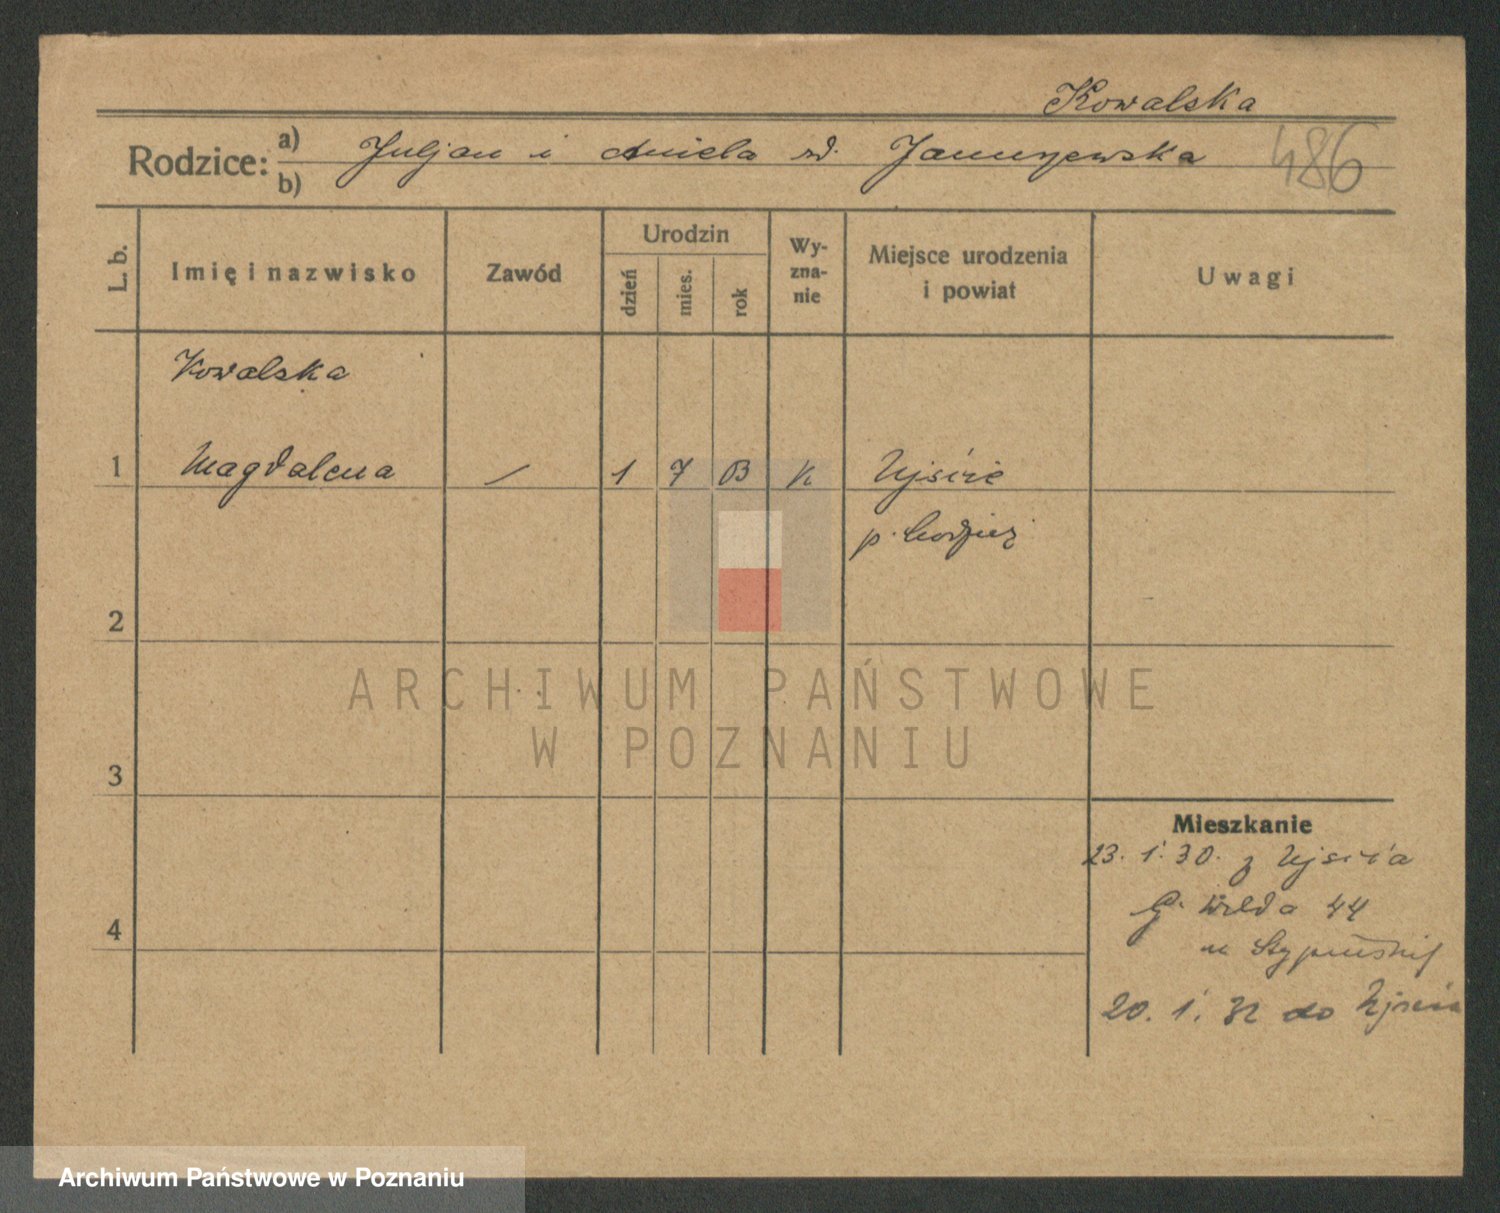 Kowalska
Rodzice: a) Juljan i Aniela zd. Januszewska 486
b)
L. b. Imię i nazwisko Zawód Urodzin dzień mies. rok Wy-zna-nie Miejsce urodzenia i powiat Uwagi
Kowalska
1 Magdalena / 1 7 13 k Ujście
p. Chodzież
2
3
Mieszkanie
23. 1. 30. z Ujścia
4 G. Wilda 44
u
20. 1. 32 do Ujścia
ARCHIWUM PAŃSTWOWE
W POZNANIU
Archiwum Państwowe w Poznaniu